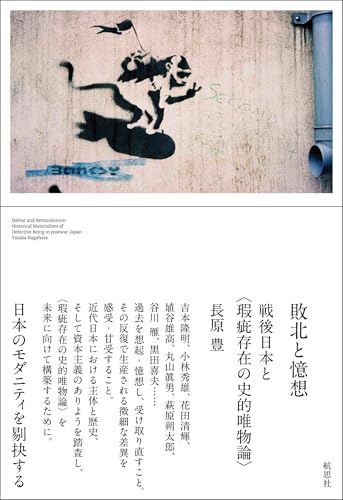 BANKSY
Defeat and Reminiscence:
Historical Materialisms of
Defective Being in postwar Japan
Yutaka Nagahara
敗北と憶想
戦後日本と
〈瑕疵存在の史的唯物論〉
長原 豊
吉本隆明、小林秀雄、花田清輝、
埴谷雄高、丸山眞男、萩原朔太郎、
谷川 雁、黒田喜夫……
過去を想起‐憶想し、受け取り直すこと。
その反復で生産される微細な差異を
感受‐甘受すること。
近代日本における主体と歴史、
そして資本主義のありようを踏査し、
〈瑕疵存在の史的唯物論〉を
未来に向けて構築するために。
日本のモダニティを剔抉する
航思社